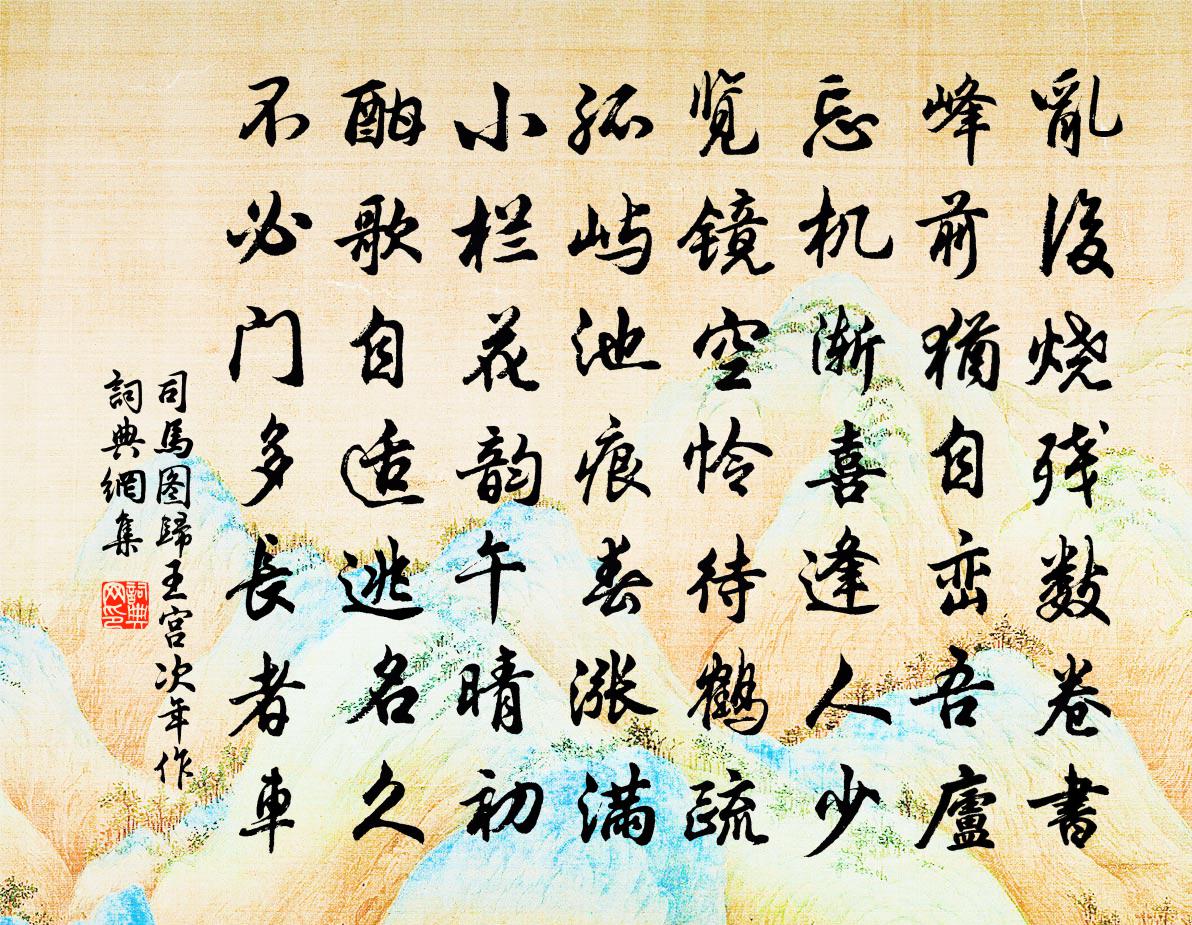 亂後烧残数卷書
峰前猶自峦吾廬
忘机渐喜逢人少
览镜空怜待鹤疏
孤屿池痕春涨满
小栏花韵午晴初
酣歌自适逃名久
不必门多長者車
司馬图歸王宫次年作
詞典網集
詞典网印